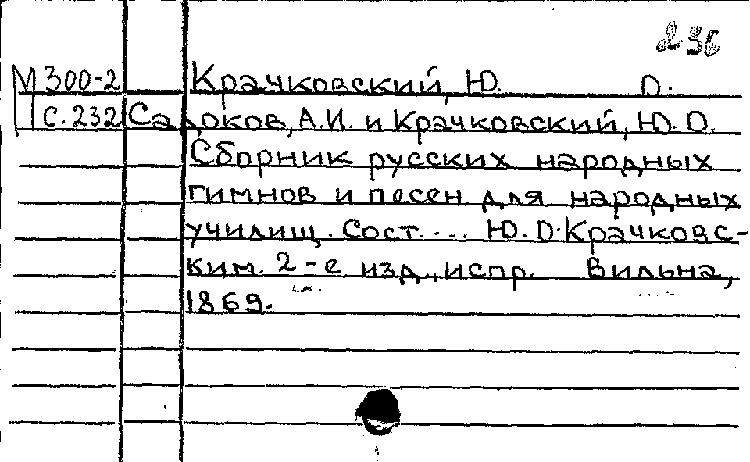 236
М 300-2 Крачковский, Ю. О.
С. 232 А.И. и Крачковский, Ю.О.
Сборник русских народных
гимнов и песен для народных
училищ. Сост. ... Ю.О. Крачковс-
ким. 2-е изд., испр. Вильна,
1869.